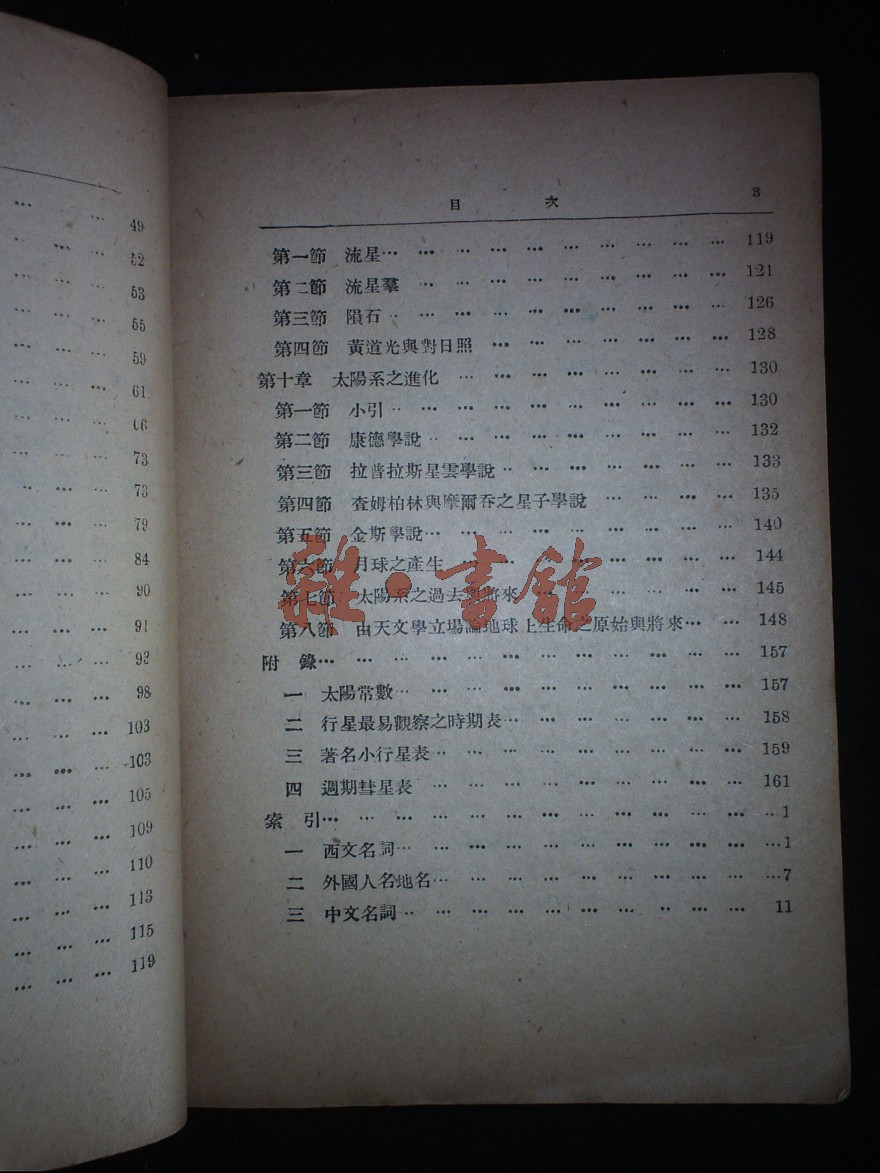 49
52
53
55
59
61
66
73
73
79
84
90
91
93
98
103
103
105
109
110
113
115
119
目 次 3
第一節 流星… … … … … … … … … … … 119
第二節 流星羣 … … … … … … … … … … 121
第三節 隕石 … … … … … … … … … … 126
第四節 黃道光與對日照 … … … … … … … 128
第十章 太陽系之進化 … … … … … … … … 130
第一節 小引 … … … … … … … … … … 130
第二節 康德學說 … … … … … … … … … 132
第三節 拉普拉斯星雲學說 … … … … … … … 133
第四節 查姆柏林與摩爾吞之星子學說 … … … … 135
第五節 金斯學說 … … … … … … … … … 140
第六節 月球之產生 … … … … … … … … 144
第七節 太陽系之過去與將來 … … … … … … 145
第八節 由天文學立場論地球上生命之原始與將來… … … 148
附 錄… … … … … … … … … … … … 157
一 太陽常數 … … … … … … … … … … 157
二 行星最易觀察之時期表 … … … … … … … 158
三 著名小行星表 … … … … … … … … … 159
四 週期彗星表 … … … … … … … … … 161
索 引… … … … … … … … … … … … 1
一 西文名詞 … … … … … … … … … … 1
二 外國人名地名 … … … … … … … … … 7
三 中文名詞 … … … … … … … … … … 11
雜·書館